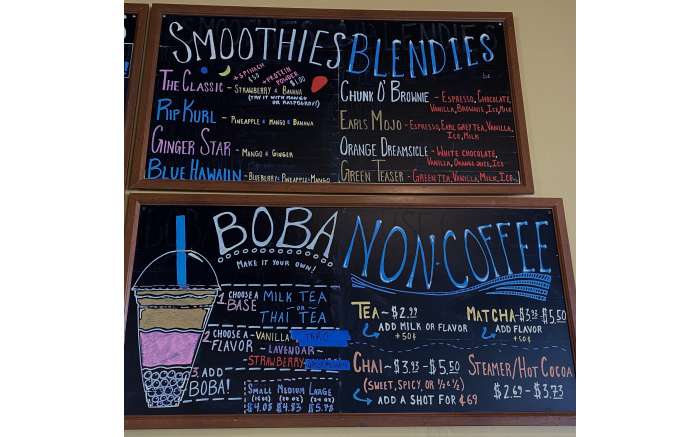 SMOOTHIES
+ SPINACH $.50
+ PROTEIN POWDER $1.00
THE CLASSIC - STRAWBERRY & BANANA
(TRY IT WITH MANGO OR RASPBERRY!)
RIP KURL - PINEAPPLE & MANGO & BANANA
GINGER STAR - MANGO & GINGER
BLUE HAWAIIN - BLUEBERRY-PINEAPPLE-MANGO
BLENDIES
CHUNK O' BROWNIE - ESPRESSO, CHOCOLATE,
VANILLA, BROWNIE, ICE, MILK
EARLS MOJO - ESPRESSO, EARL GREY TEA, VANILLA,
ICE, MILK
ORANGE DREAMSICLE - WHITE CHOCOLATE,
VANILLA, ORANGE JUICE, ICE
GREEN TEASER - GREEN TEA, VANILLA, MILK, ICE
BOBA
MAKE IT YOUR OWN!
1. CHOOSE A BASE
MILK TEA
OR
THAI TEA
2. CHOOSE A FLAVOR
- VANILLA - TARO
- LAVENDAR -
STRAWBERRY
3. ADD BOBA!
SMALL MEDIUM LARGE
(16 OZ) (20 OZ) (24 OZ)
$4.08 $4.83 $5.78
NON-COFFEE
TEA ~ $2.99
ADD MILK OR FLAVOR
+50¢
MATCHA - $3.95 - $5.50
ADD FLAVOR
+50¢
CHAI ~ $3.93 - $5.50
(SWEET, SPICY, OR ½ & ½)
ADD A SHOT FOR ¢69
STEAMER/HOT COCOA
$2.69 - $3.73